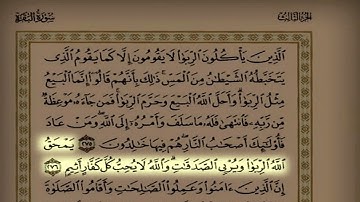 سورة البقرة
الجزء الثالث
ٱلَّذِينَ يَأْكُلُونَ ٱلرِّبَوٰا۟ لَا يَقُومُونَ إِلَّا كَمَا يَقُومُ ٱلَّذِى
يَتَخَبَّطُهُ ٱلشَّيْطَٰنُ مِنَ ٱلْمَسِّ ذَٰلِكَ بِأَنَّهُمْ قَالُوٓا۟ إِنَّمَا ٱلْبَيْعُ
مِثْلُ ٱلرِّبَوٰا۟ وَأَحَلَّ ٱللَّهُ ٱلْبَيْعَ وَحَرَّمَ ٱلرِّبَوٰا۟ فَمَن جَآءَهُۥ مَوْعِظَةٌ
مِّن رَّبِّهِۦ فَٱنتَهَىٰ فَلَهُۥ مَا سَلَفَ وَأَمْرُهُۥٓ إِلَى ٱللَّهِ وَمَنْ عَادَ
فَأُو۟لَٰٓئِكَ أَصْحَٰبُ ٱلنَّارِ هُمْ فِيهَا خَٰلِدُونَ ٢٧٥ يَمْحَقُ
ٱللَّهُ ٱلرِّبَوٰا۟ وَيُرْبِى ٱلصَّدَقَٰتِ وَٱللَّهُ لَا يُحِبُّ كُلَّ كَفَّارٍ أَثِيمٍ ٢٧٦
إِنَّ ٱلَّذِينَ ءَامَنُوا۟ وَعَمِلُوا۟ ٱلصَّٰلِحَٰتِ وَأَقَامُوا۟ ٱلصَّلَوٰةَ